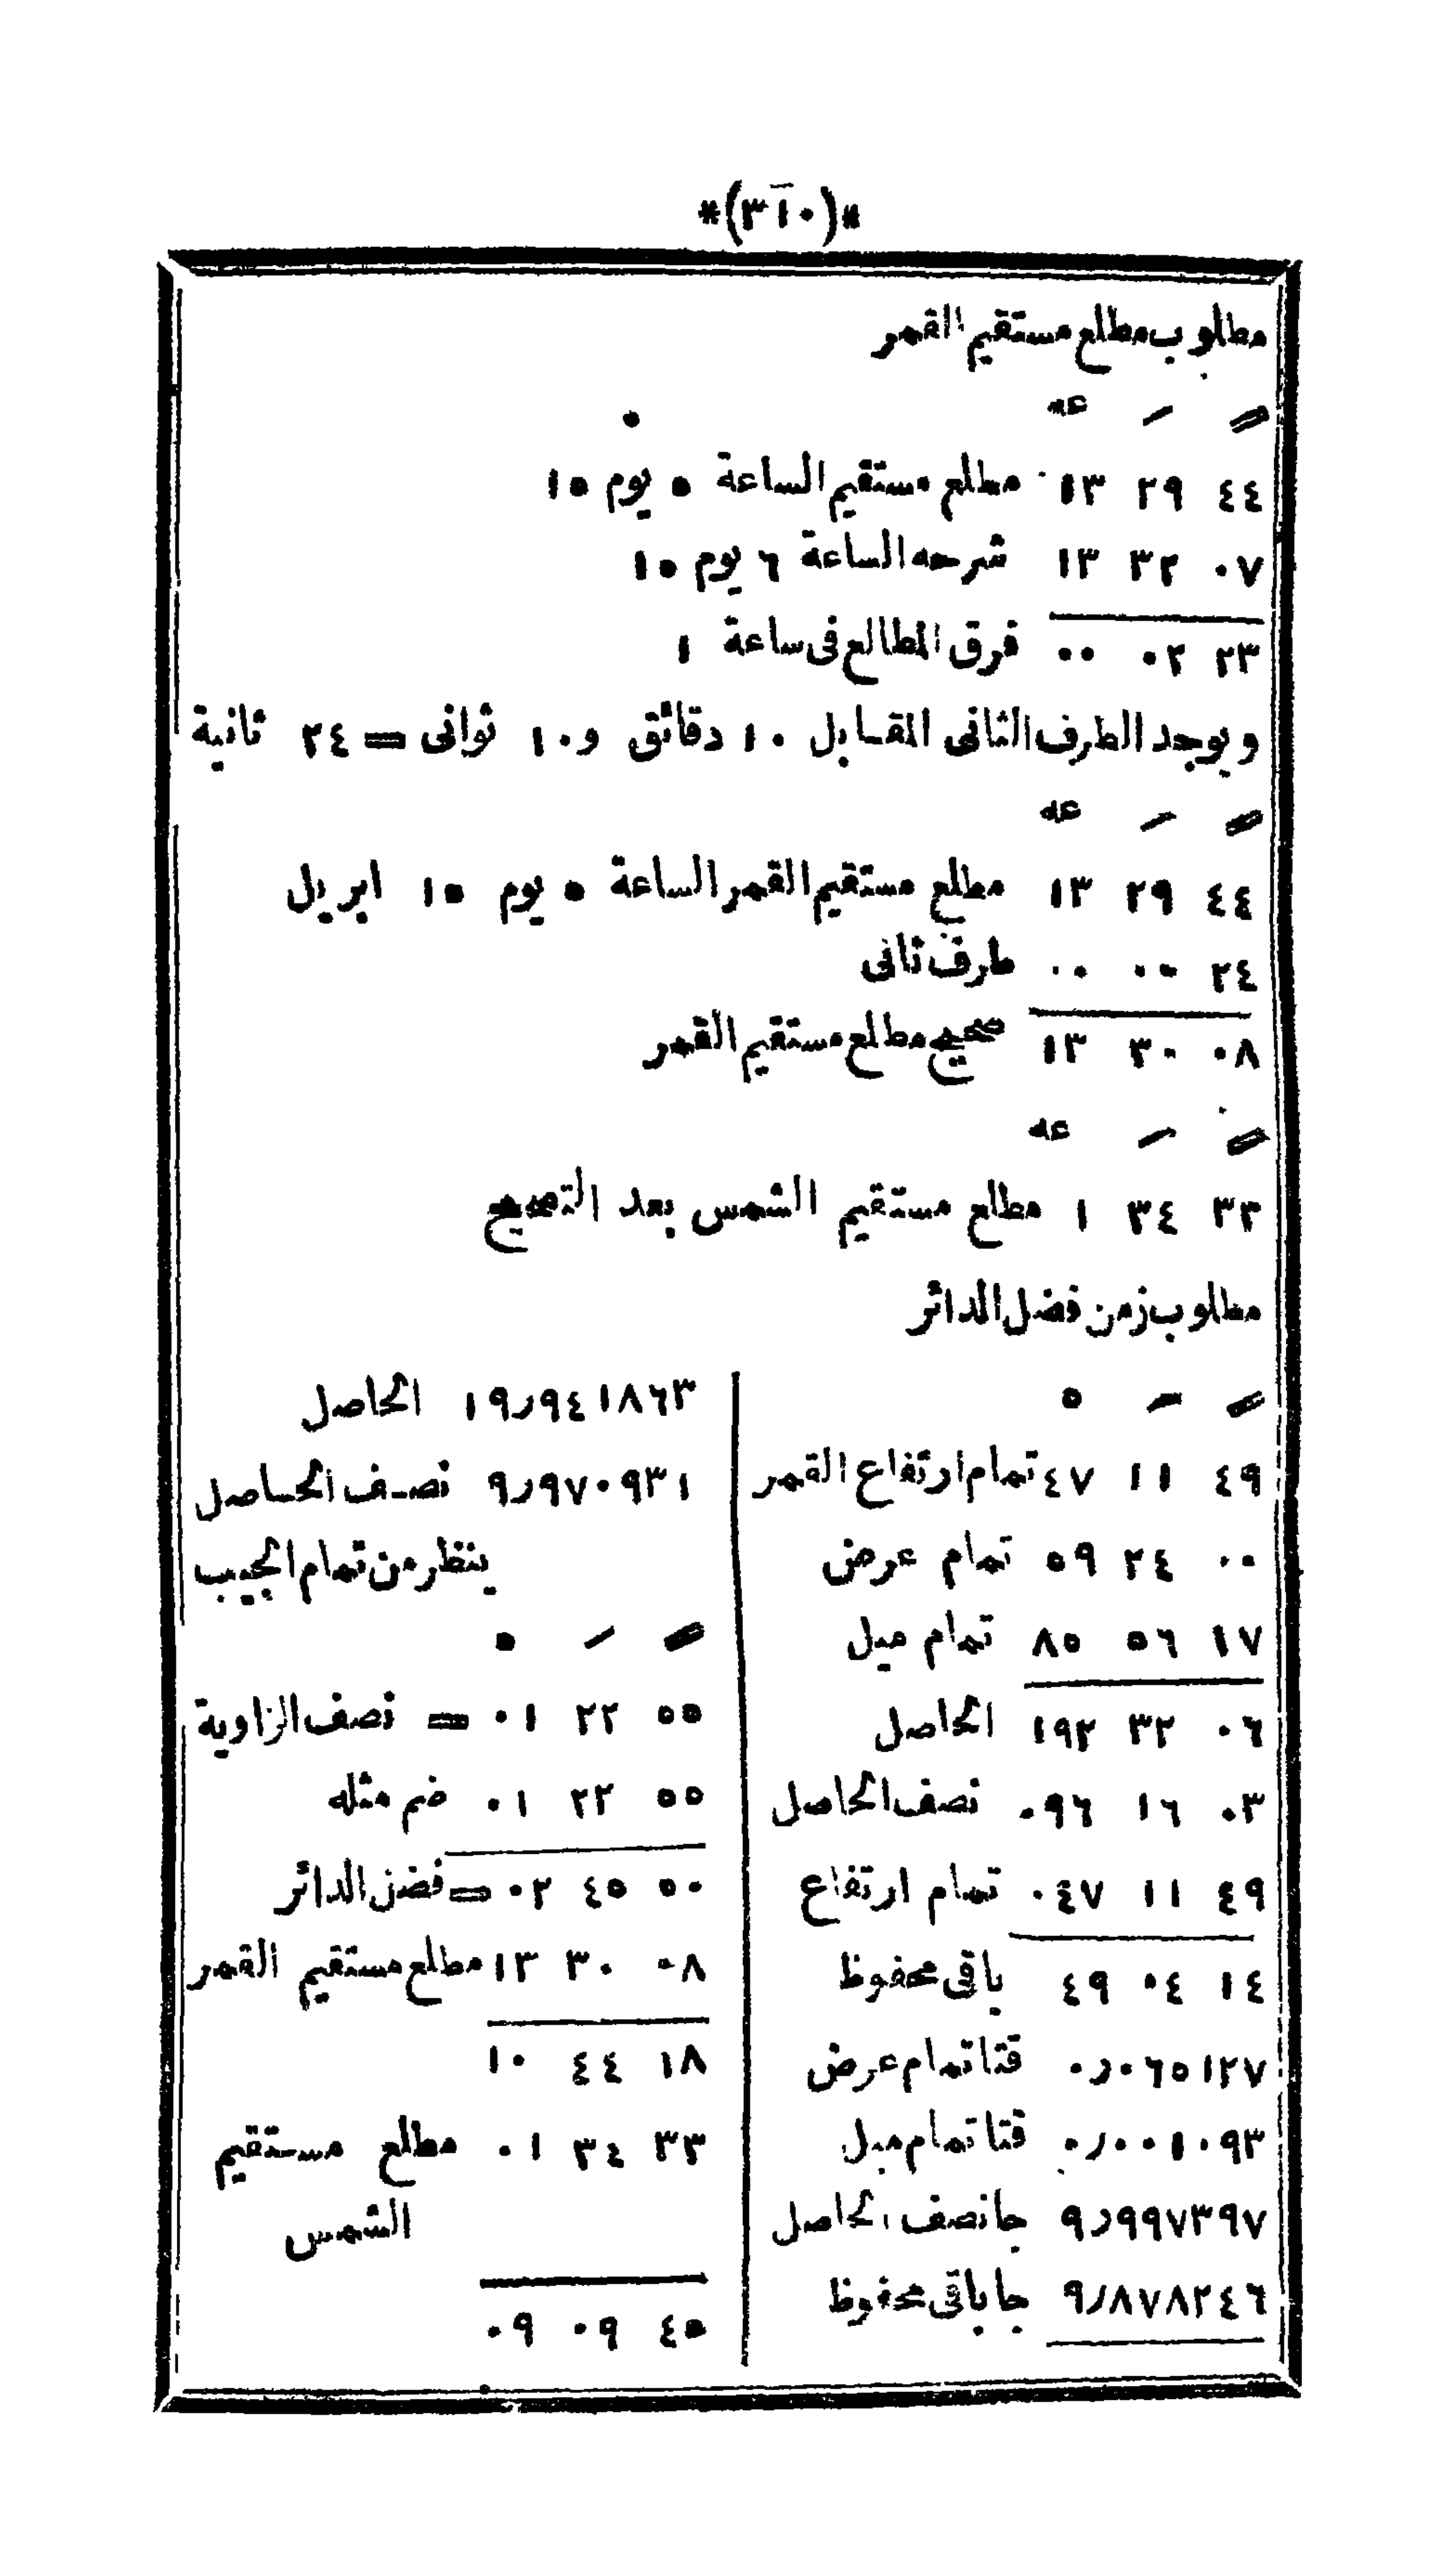 *(٣١٠)*
مطلوب مطلع مستقيم القمر
″ ′ عه
٤٤ ٢٩ ١٣ مطلع مستقيم الساعة ٥ يوم ١٥
٠٧ ٣٢ ١٣ شرحه الساعة ٦ يوم ١٥
٢٣ ٠٢ ٠٠ فرق المطالع فى ساعة ١
ويوجد الطرف الثانى المقابل ١٠ دقائق و١٠ ثوانى = ٢٤ ثانية
″ ′ عه
٤٤ ٢٩ ١٣ مطلع مستقيم القمر الساعة ٥ يوم ١٥ ابريل
٢٤ ٠٠ ٠٠ طرف ثانى
٠٨ ٣٠ ١٣ صحيح مطلع مستقيم القمر
″ ′ عه
٣٣ ٣٤ ١ مطلع مستقيم الشمس بعد التصحيح
مطلوب زمن فضل الدائر
″ ′ ٥
٤٩ ١١ ٤٧ تمام ارتفاع القمر
٠٠ ٢٤ ٥٩ تمام عرض
١٧ ٥٦ ٨٥ تمام ميل
٠٦ ٣٢ ١٩٢ الحاصل
٠٣ ١٦ ٠٩٦ نصف الحاصل
٤٩ ١١ ٠٤٧ تمام ارتفاع
١٤ ٠٤ ٤٩ باقى محفوظ
٠٫٠٦٥١٢٧ قتا تمام عرض
٠٫٠٠١٠٩٣ قتا تمام ميل
٩٫٩٩٧٣٩٧ جا نصف الحاصل
٩٫٨٧٨٢٤٦ جا باقى محفوظ
١٩٫٩٤١٨٦٣ الحاصل
٩٫٩٧٠٩٣١ نصف الحاصل
ينظر من تمام الجيب
″ ′ ٥
٥٥ ٢٢ ٠١ = نصف الزاوية
٥٥ ٢٢ ٠١ ضم مثله
٥٠ ٤٥ ٠٢ = فضل الدائر
٠٨ ٣٠ ١٣ مطلع مستقيم القمر
١٨ ٤٤ ١٠
٣٣ ٣٤ ٠١ مطلع مستقيم
الشمس
٤٥ ٠٩ ٠٩